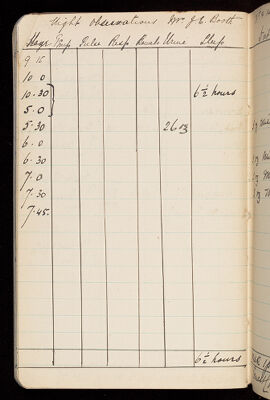 Night Observations Mr J. E. Booth
Hours Temp Pulse Resp Bowels Urine Sleep
9.15
10.0
10.30 6½ hours
5.0
5.30 26 oz
6.0
6.30
7.0
7.30
7.45.
6½ hours